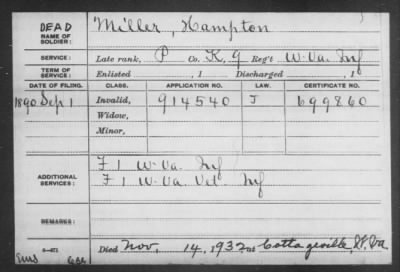 DEAD
NAME OF SOLDIER: Miller, Hampton
SERVICE: Late rank, P Co. K, 9 Reg't W. Va. Inf
TERM OF SERVICE: Enlisted , 1 Discharged , 1
DATE OF FILING. CLASS. APPLICATION NO. LAW. CERTIFICATE NO.
1890 Sep 1 Invalid, 914540 J 699860
Widow,
Minor,
ADDITIONAL SERVICES: F 1 W. Va. Inf
F 1 W. Va. Vet. Inf
REMARKS:
Died Nov, 14, 1932 at Cottageville, W. Va.